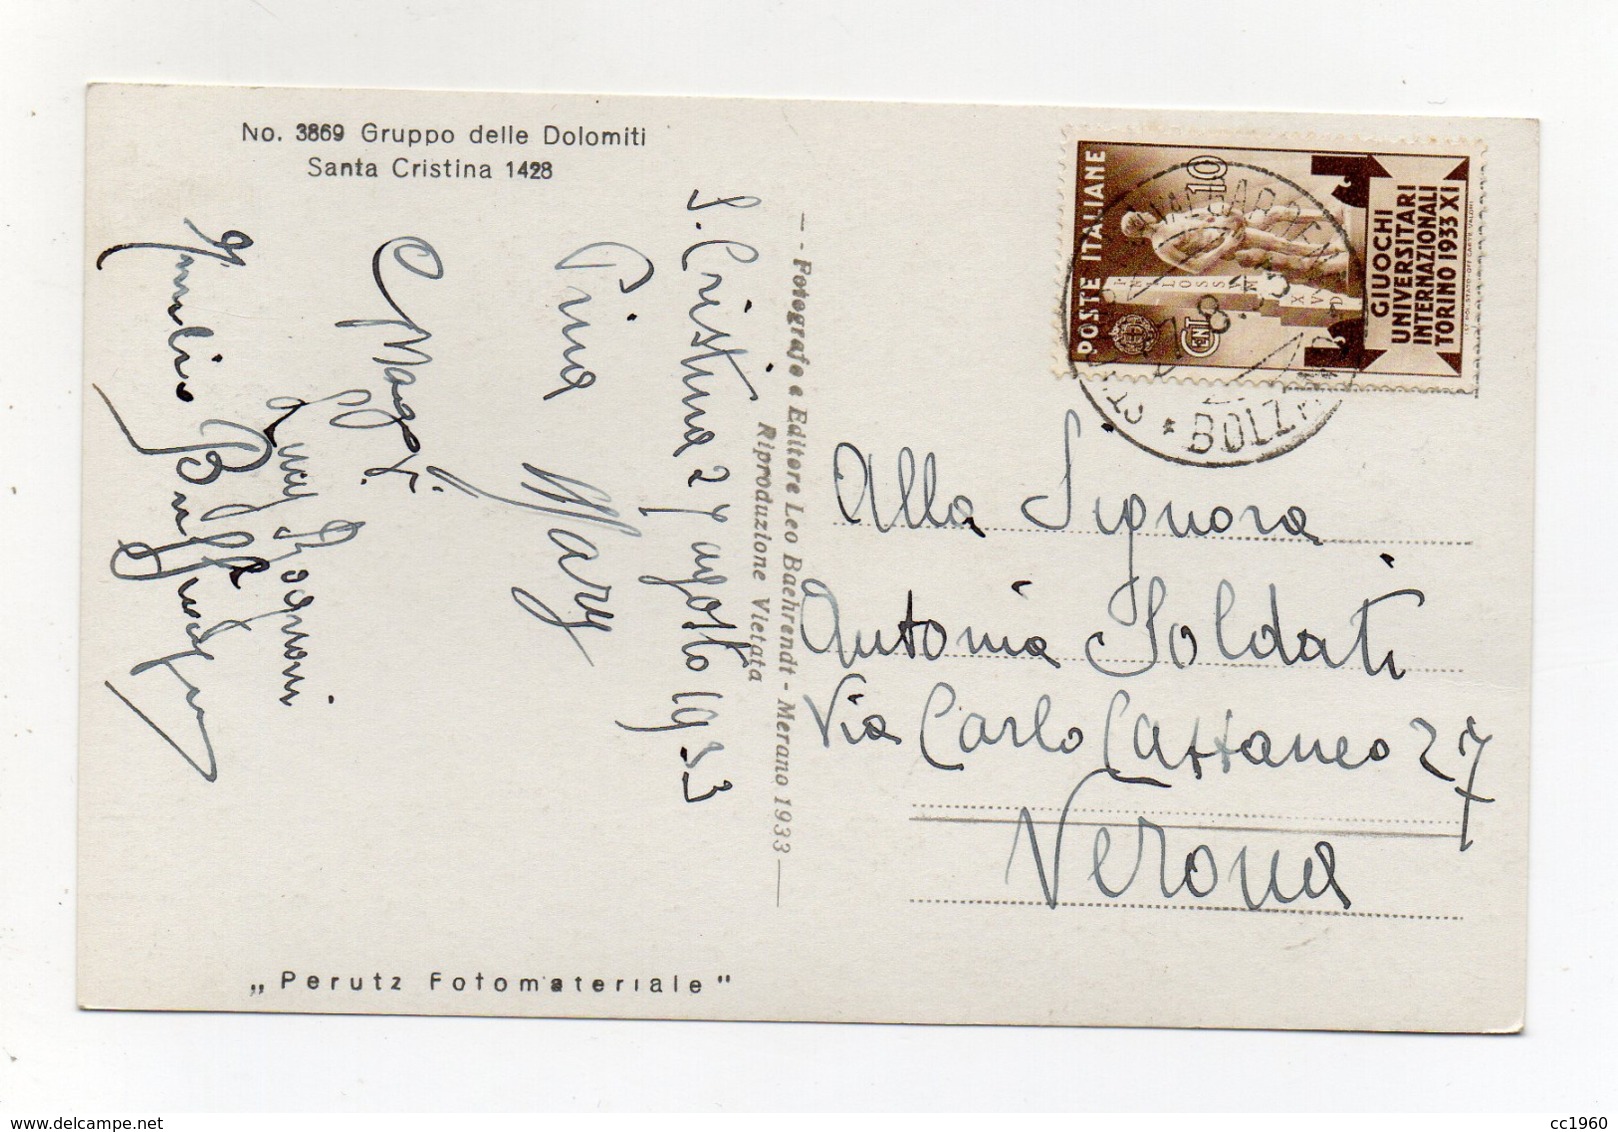 No. 3869 Gruppo delle Dolomiti
Santa Cristina 1428
S. Cristina 27 agosto 1933
Pina Mary
C Maggi
Lucy Rognoni
Amelia
— - Fotografo e Editore Leo Baehrendt - Merano 1933 —
Riproduzione Vietata
POSTE ITALIANE
10
CENT
GIUOCHI
UNIVERSITARI
INTERNAZIONALI
TORINO 1933 XI
* BOLZANO
Alla Signora
Antonia Soldati
Via Carlo Cattaneo 27
Verona
„Perutz Fotomateriale"
delcampe.net
cc1960